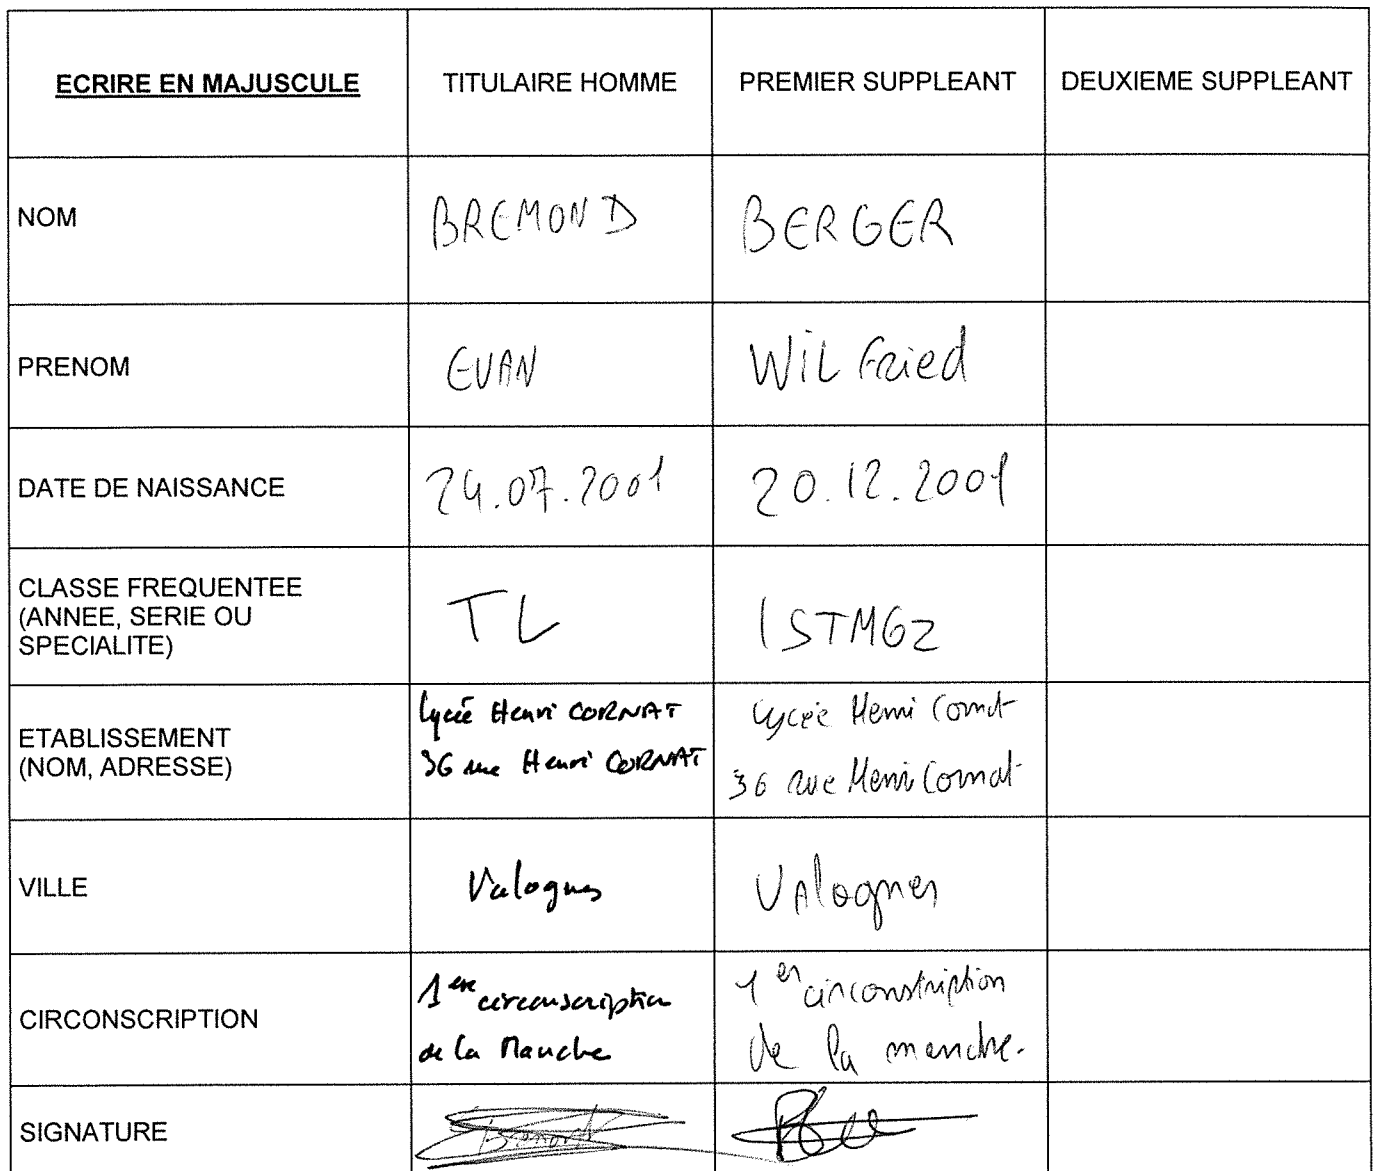 ECRIRE EN MAJUSCULE TITULAIRE HOMME PREMIER SUPPLEANT DEUXIEME SUPPLEANT
NOM BREMOND BERGER
PRENOM EVAN WILFried
DATE DE NAISSANCE 24.07.2001 20.12.2001
CLASSE FREQUENTEE
(ANNEE, SERIE OU
SPECIALITE)
TL 1STMG2
ETABLISSEMENT
(NOM, ADRESSE)
lycée Henri CORNAT
36 rue Henri CORNAT
Lycée Henri Cornat
36 rue Henri Cornat
VILLE Valognes VAlognes
CIRCONSCRIPTION
1ere circonscription
de la Manche
1er circonstription
de la manche.
SIGNATURE